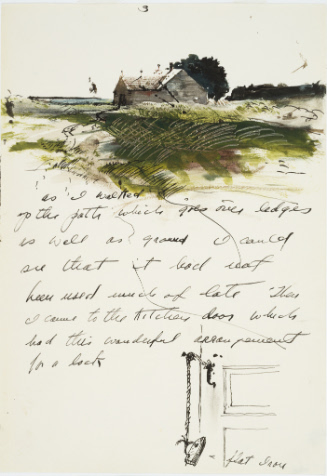 3
as I walked
up the path which goes over ledges
as well as ground I could
see that it had not
been used much of late Then
I came to the Kitchen door which
had this wonderful arrangement
for a lock
flat Iron